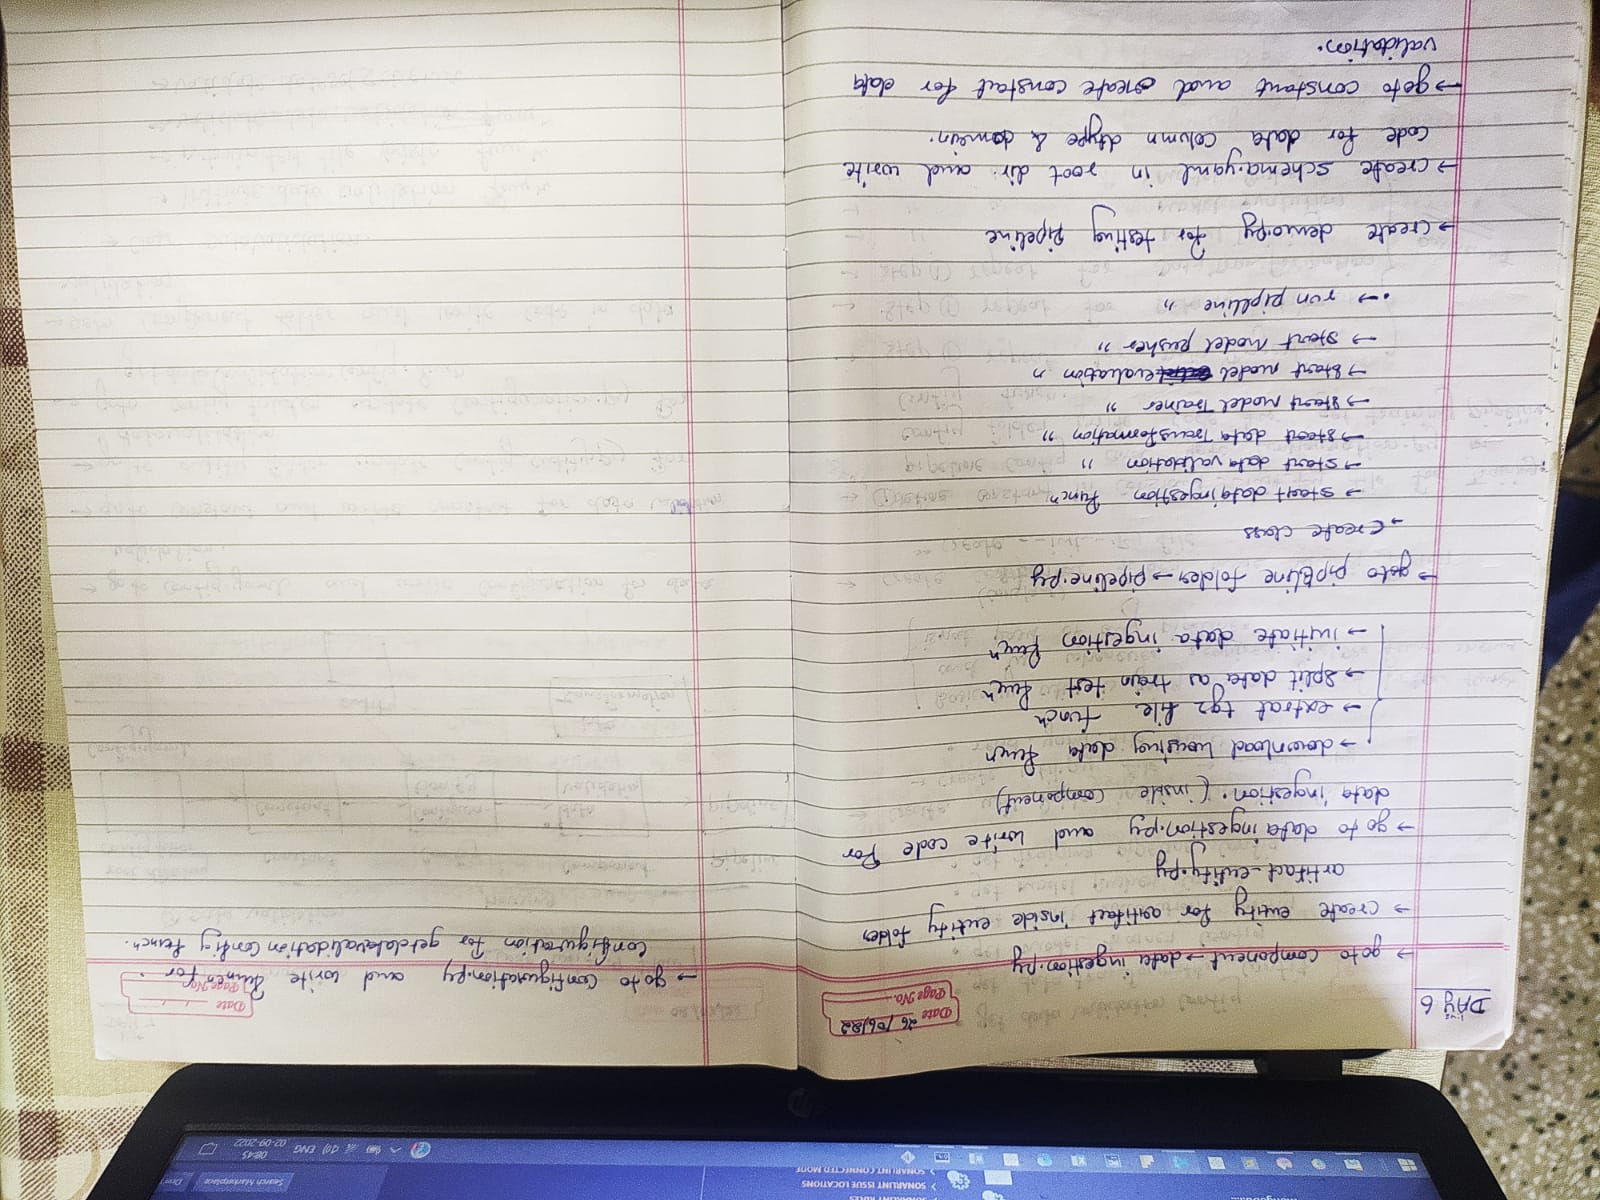 SONARLINT ISSUE LOCATIONS
SONARLINT CONNECTED MODE
Search Marketplace
ENG
08:45
02-09-2022
DAY 6
Date 26/06/22
Page No.
→ goto component → data ingestion.py
→ create entity for artifact inside entity folder
artifact_entity.py
→ go to data ingestion.py and write code for
data ingestion. (inside component)
→ download housing data funcn
→ extrat tgz file funcn
→ split data as train test funcn
→ initiate data ingestion funcn
→ goto pipeline folder → pipeline.py
→ create class
→ start data ingestion funcn
→ start data validation "
→ start data Transformation "
→ start Model Trainer "
→ start model evaluation "
→ start Model pusher "
→ run piplline "
→ create demo.py for testing pipeline
→ create schema.yaml in root dir. and write
code for data column dtype & domain.
→ goto constant and create constact for data
validation.
Date
Page No.
→ go to configuration.py and write for
configuration for getdatavalidation config funcn.